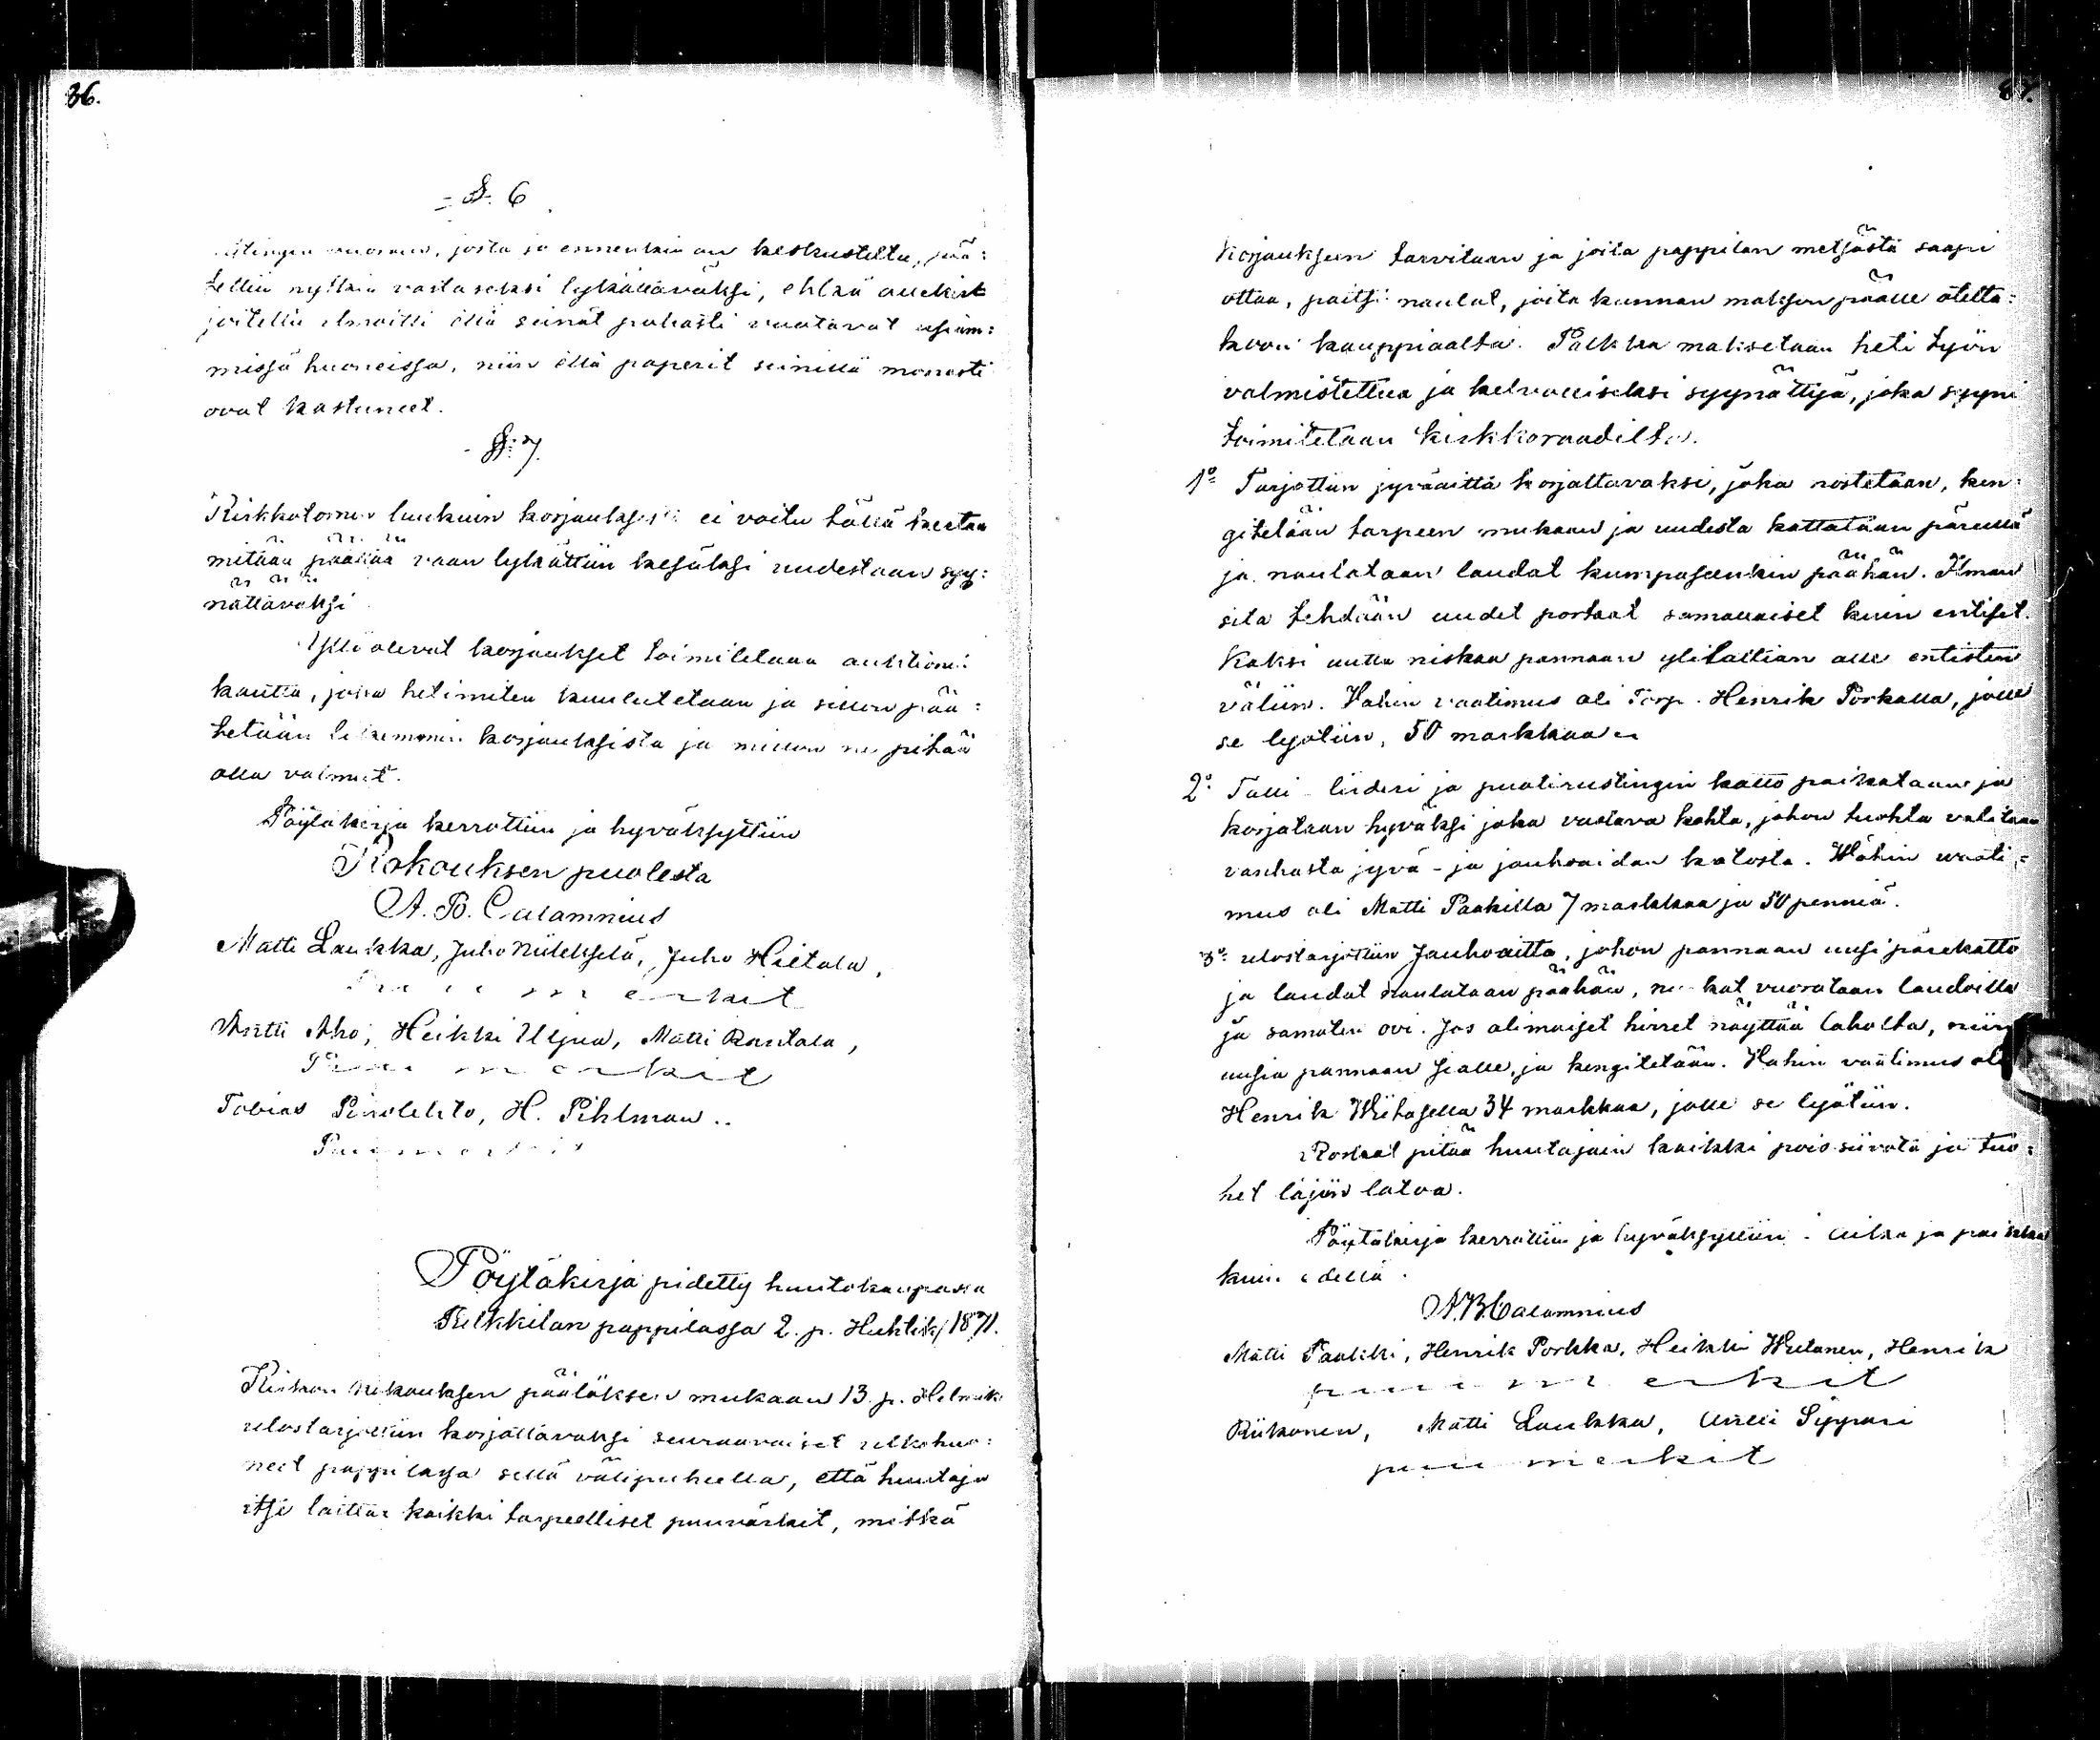 36.
§. 6
vuoraus, josta jo ennenkin on keskusteltu, pää:
tettiin nytkin vastaseksi lykättäväksi, ehkä allekir
joitettu ilmoitti että seinät pahasti vuotavat usiam:
missa huoneissa, niin että paperit seinillä monesti
ovat kastuneet.
§. 7.
Kirkkotornin luukuin korjauksesta ei voitu tällä kertaa
mitään päättää vaan lykättiin kesäksi uudestaan syy:
nättäväksi
Yllä olevat korjaukset toimitetaan auktioni
kautta, joka hetimiten kuulutetaan ja silloin pää:
tetään likemmin korjauksista ja milloin ne pitää
olla valmiit.
Pöytäkirja kerrottiin ja hyväksyttiin
Kokouksen puolesta
A. B. Calamnius
Matti Laukka, Juho Niilekselä, Juho Hietala,
Puumerkit
Antti Aho, Heikki Uljua, Matti Rantala,
Puumerkit
Tobias Pinolehto, H. Pihlman..
Puumerkit
Pöytäkirja pidetty huutokaupassa
Pulkkilan pappilassa 2. p. Huhtik. 1871.
Kirkon kokouksen päätöksen mukaan 13. p. Helmik.
ulostarjottiin korjattavaksi seuraavaiset ulkohuo:
neet pappilassa sellä välipuheella, että huutaja
itse laittaa kaikki tarpeelliset puuvärkit, mitkä
87.
korjaukseen tarvitaan ja joita pappilan metsästä saapi
ottaa, paitsi naulat, joita kunnan maksun päälle otetta:
koon kauppiaalta. Palkka maksetaan heti työn
valmistettua ja kelvolliseksi syynättyä, joka syyni
toimitetaan kirkkoraadilta.
1º Tarjottiin jyväaitta korjattavaksi, joka nostetaan, ken:
gitetään tarpeen mukaan ja uudesta kattataan päreillä
ja naulataan laudat kumpaseenkin päähän. Ilman
sitä tehdään uudet portaat samallaiset kuin entiset.
Kaksi uutta niskaa pannaan ylilattian alle entisten
väliin. Vähin vaatimus oli Torp. Henrik Porkalla, jolle
se lyötiin, 50 markkaa
2º Talli liideri ja puotirustingin katto paikataan ja
korjataan hyväksi joka vuotava kohta, johon tuohta valitaan
vanhasta jyvä- ja jauhoaidan katosta. Wähin vaati:
mus oli Matti Paakilla 7 markkaa ja 50 penniä.
3º ulostarjottiin Jauhoaitta, johon pannaan uusi pärekatto
ja laudat naulataan päähän, vuorataan laudoilla
ja samaten ovi. Jos alimaiset hirret näyttää laholta, niin
uusia pannaan sialle, ja kengitetään. Vähin vaatimus oli
Henrik Wiitasella 34 markkaa, jolle se lyötiin.
Roskat pitää huutajain kaikki pois siivota ja tuo:
het läjiin latoa.
Pöytäkirja kerrottiin ja hyväksyttiin. Aika ja paikka
kuin edellä.
A.B. Calamnius
Matti Paakki, Henrik Porkka, Heikki Wiitanen, Henrik
puumerkit
Riikonen, Matti Laukka, Antti Sippari
puumerkit